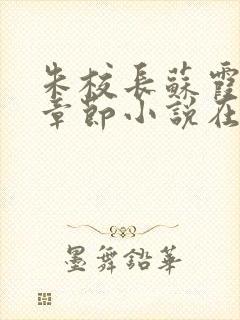 朱校長蘇霞
章節小說在
墨舞鉛華